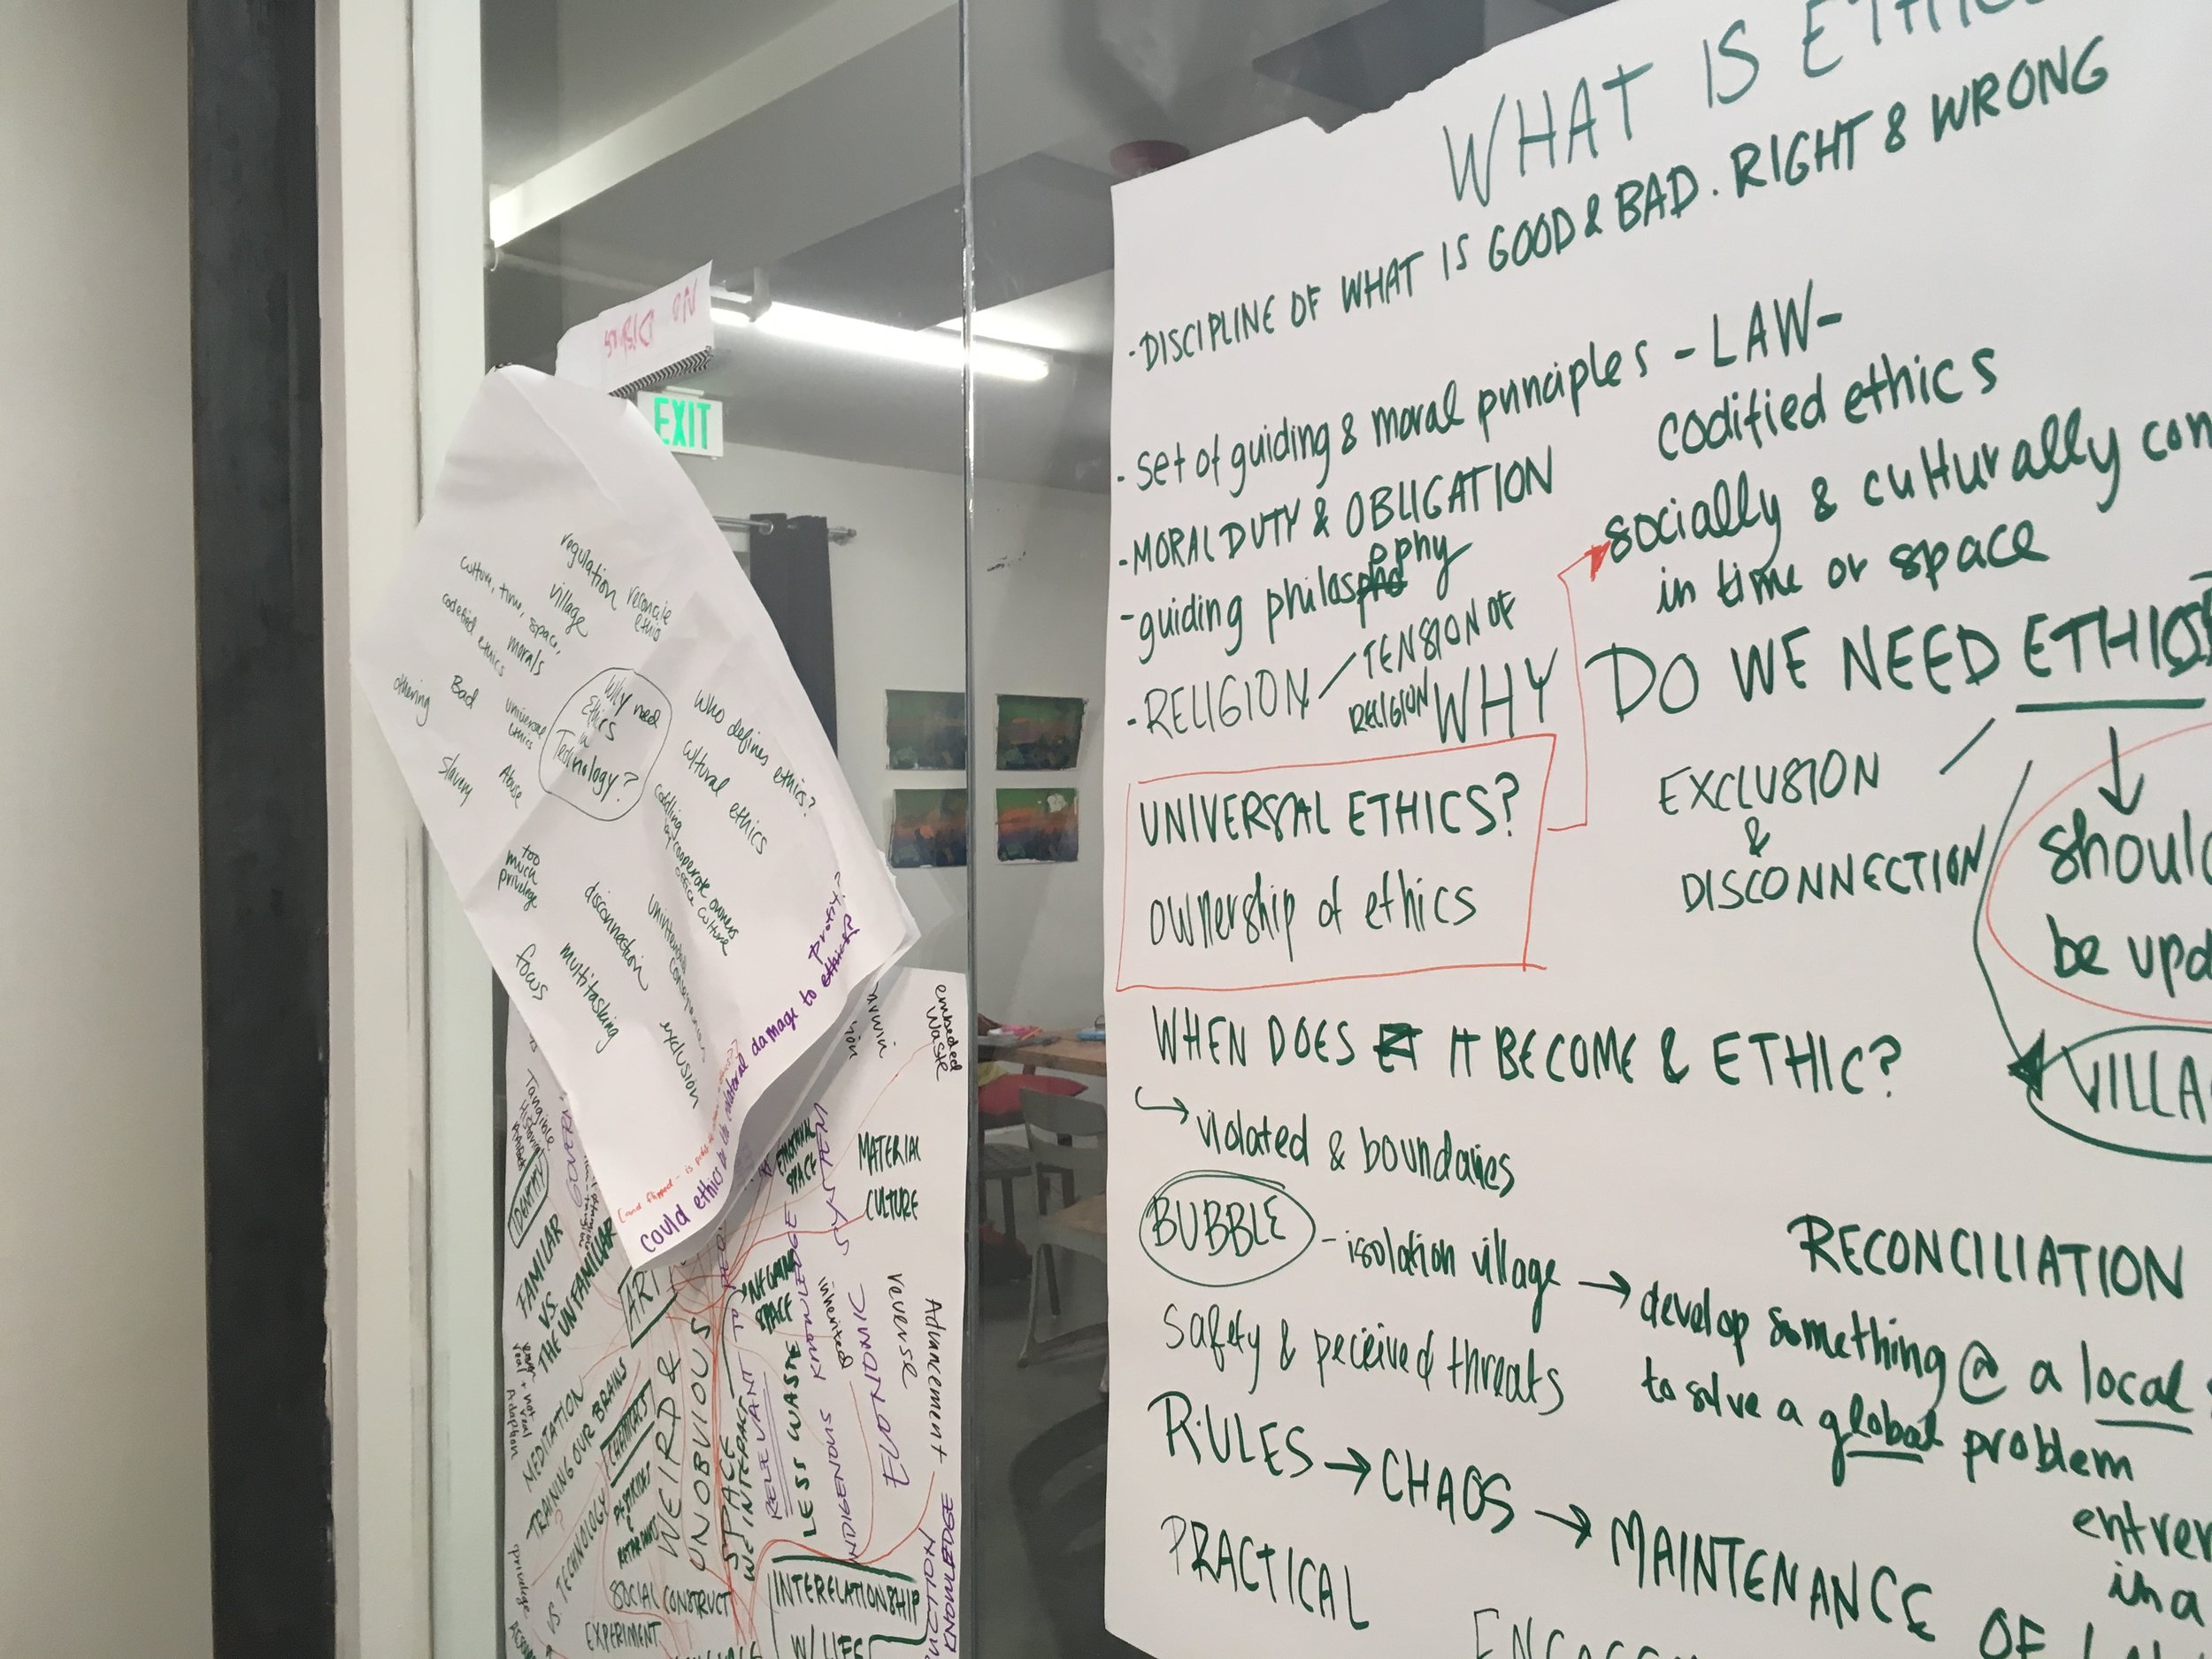 EXIT
regulation
reconcile
ethic
village
culture, time, space,
morals
codefied ethics
othering
Bad
universal
ethics
Why need
Ethics
in
Technology?
Who defines ethics?
cultural ethics
Slavery
Abuse
coddling
by cooperate owners
office culture
too
much
privilege
disconnection
focus
multitasking
exclusion
profit?
could ethics be the collateral damage to ethics?
embeded
Waste
Tangible
IDENTITY
EMOTIONAL
SPACE
SYSTEM
MATERIAL
CULTURE
FAMILIAR
VS.
THE UNFAMILIAR
ART
NEGATIVE
SPACE
KNOWLEDGE
INDIGENOUS
ECONOMIC
reverse
Advancement
MEDITATION
TRAINING OUR BRAINS
CHEMICALS
VS. TECHNOLOGY
WEIRD &
UNOBVIOUS
SPACE
WE INTERPACT
RELEVANT
LESS WASTE
privilege
SOCIAL CONSTRUCT
EXPERIMENT
INTERELATIONSHIP
W/ LIES
KNOWLEDGE
WHAT IS ETHICS
- DISCIPLINE OF WHAT IS GOOD & BAD. RIGHT & WRONG
- set of guiding & moral principles - LAW -
codified ethics
- MORAL DUTY & OBLIGATION
socially & culturally con
in time or space
- guiding philosophy
- RELIGION / TENSION OF
RELIGION
WHY DO WE NEED ETHICS
UNIVERSAL ETHICS?
ownership of ethics
EXCLUSION
&
DISCONNECTION
should
be upd
WHEN DOES IT BECOME & ETHIC?
VILLA
violated & boundaries
BUBBLE - isolation village → develop something @ a local
to solve a global problem
RECONCILIATION
Safety & perceived threats
RULES → CHAOS → MAINTENANCE OF
PRACTICAL
entrer
in a